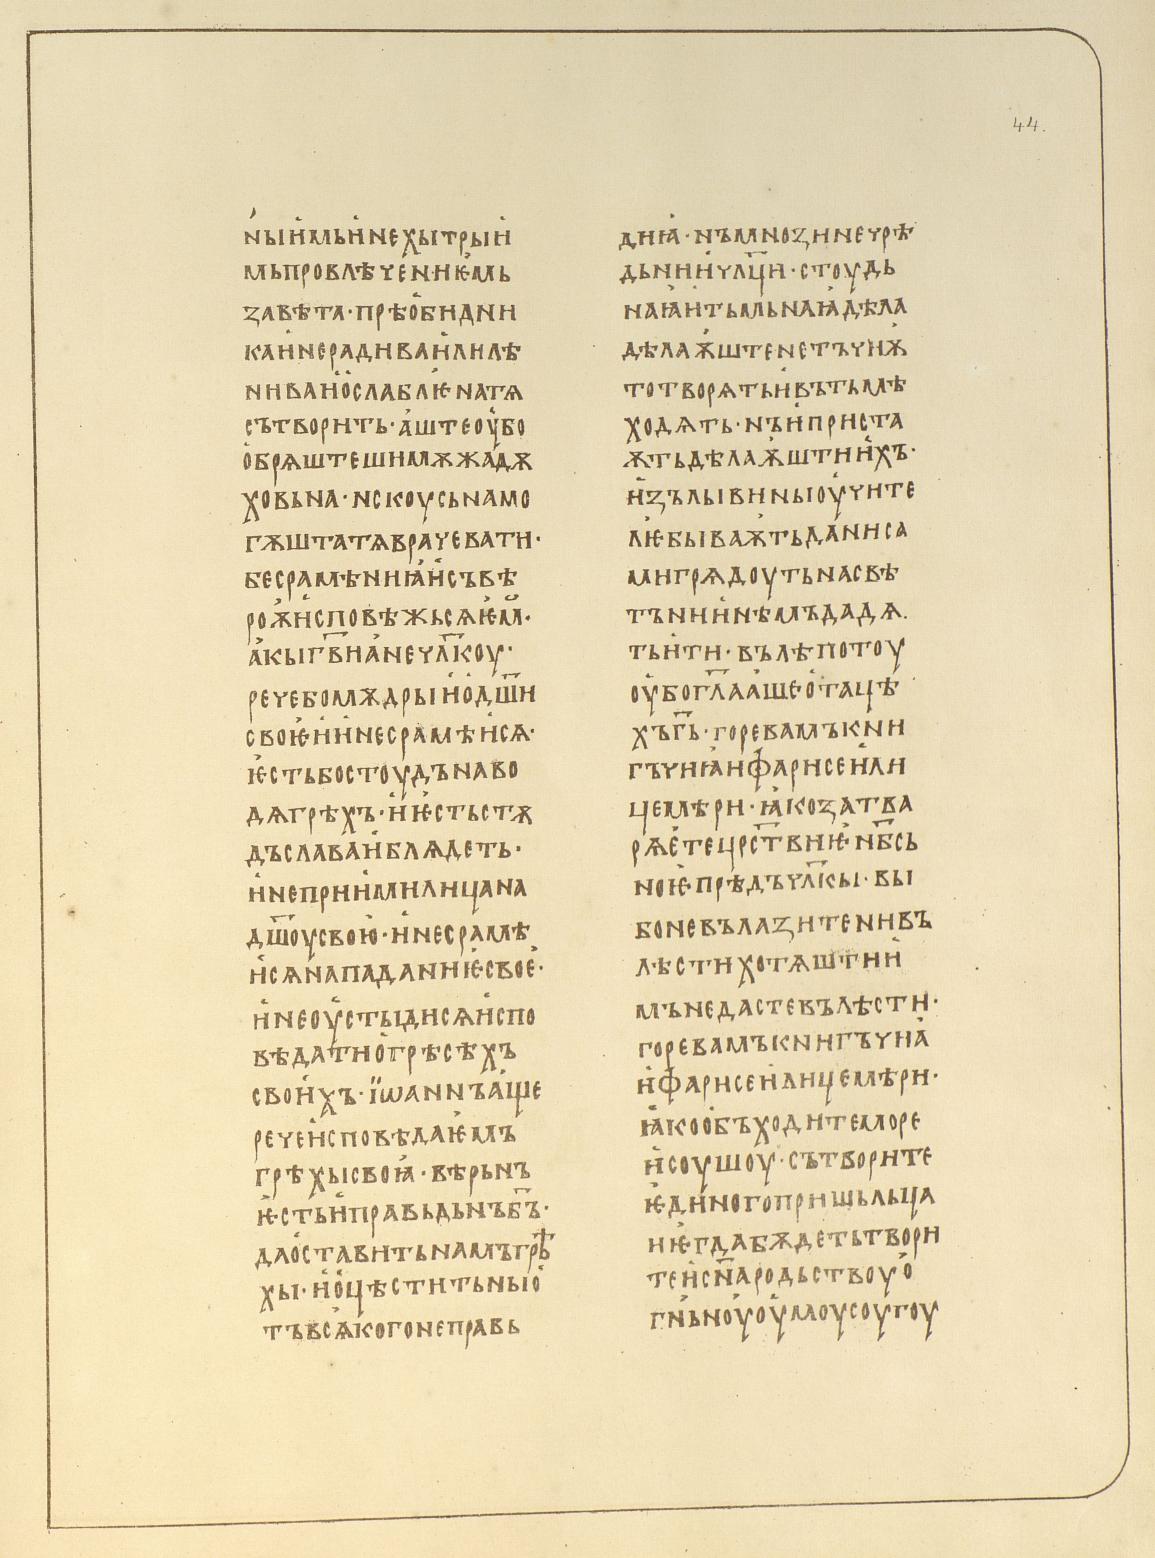 44.
нъіи҆мьи҆нехъітръіи҆
мьпровлѣчен҆иѥ҆мь
ꙁавѣта·прѣо҆бидѧни
каи҆нерадиваи҆лилѣ
ниваи҆о҆слаблѥнатѧ
сътворить·а҆штеоу҆бо
о҆брѧштешимѫжадѫ
ховьна·искоусьнамо
гѫштатѧврачевати·
бесрамѣниꙗ҆и҆съвѣ
роѭ҆и҆сповѣжьсѧѥ҆м·
а҆къігв҃иа҆нечлк҃оу·
речебомѫдръіи҆о҆дш҃и
своѥ҆и҆и҆несрамѣи҆сѧ·
ѥ҆стьбостоудънаво
дѧгрѣхъ·и҆ѥ҆стьстѫ
дъславаи҆блѧдеть·
и҆неприи҆млилицана
дш҃оусвою҆·и҆несрамѣ
и҆сѧнападаниѥ҆своѥ·
и҆неоу҆стъідисѧи҆спо
вѣдатио҆грѣсѣхъ
свои҆хъ·їѡаннъа҆ще
речеи҆сповѣдаѥ҆мъ
грѣхъісвоꙗ҆·вѣрьнъ
ѥ҆стьи҆правьдьнъб҃ъ·
дао҆ставитьнамъгрѣ
хъі·и҆о҆цѣститьнъіо҆
тъвсѧкогонеправь
диꙗ҆·нъмноꙁинечрѣ
дьнии҆члц҃и·стоудь
наꙗ҆и҆тьмьнаꙗ҆дѣла
дѣлаѭ҆штенетъчиѭ҆
тотворѧтьи҆вътьмѣ
ходѧть·нъи҆приста
ѭтьдѣлаѭ҆штии҆хъ·
и҆ꙁълъівинъіоу҆чите
лѥ҆бъіваѭ҆тьданиса
мигрѧдоутьнасвѣ
тънии҆нѣмъдадѧ.
тьи҆ти·вълѣпотоу
оу҆богл҃аашео҆тацѣ
хъгь҃·горевамъкни
гъчиꙗ҆ифарисеи҆ли
цемѣри·ꙗ҆коꙁатва
рѧе҆тецрст҃виѥ҆·нб҃сь
ноѥ҆·прѣдъчлк҃ъі·въі
боневълаꙁитенивъ
лѣстихотѧштии҆
мънедастевълѣсти·
горевамъкнигъчиꙗ҆
и҆фарисеи҆лицемѣри·
ꙗ҆коо҆бъходитеморе
и҆соушоу·сътворите
ѥ҆ди҆ногопришьльца
иѥ҆гдабѫдетьтвори
теи҆сн҃ародьствоуо҆
гньноу҆оу҆моусоугоу